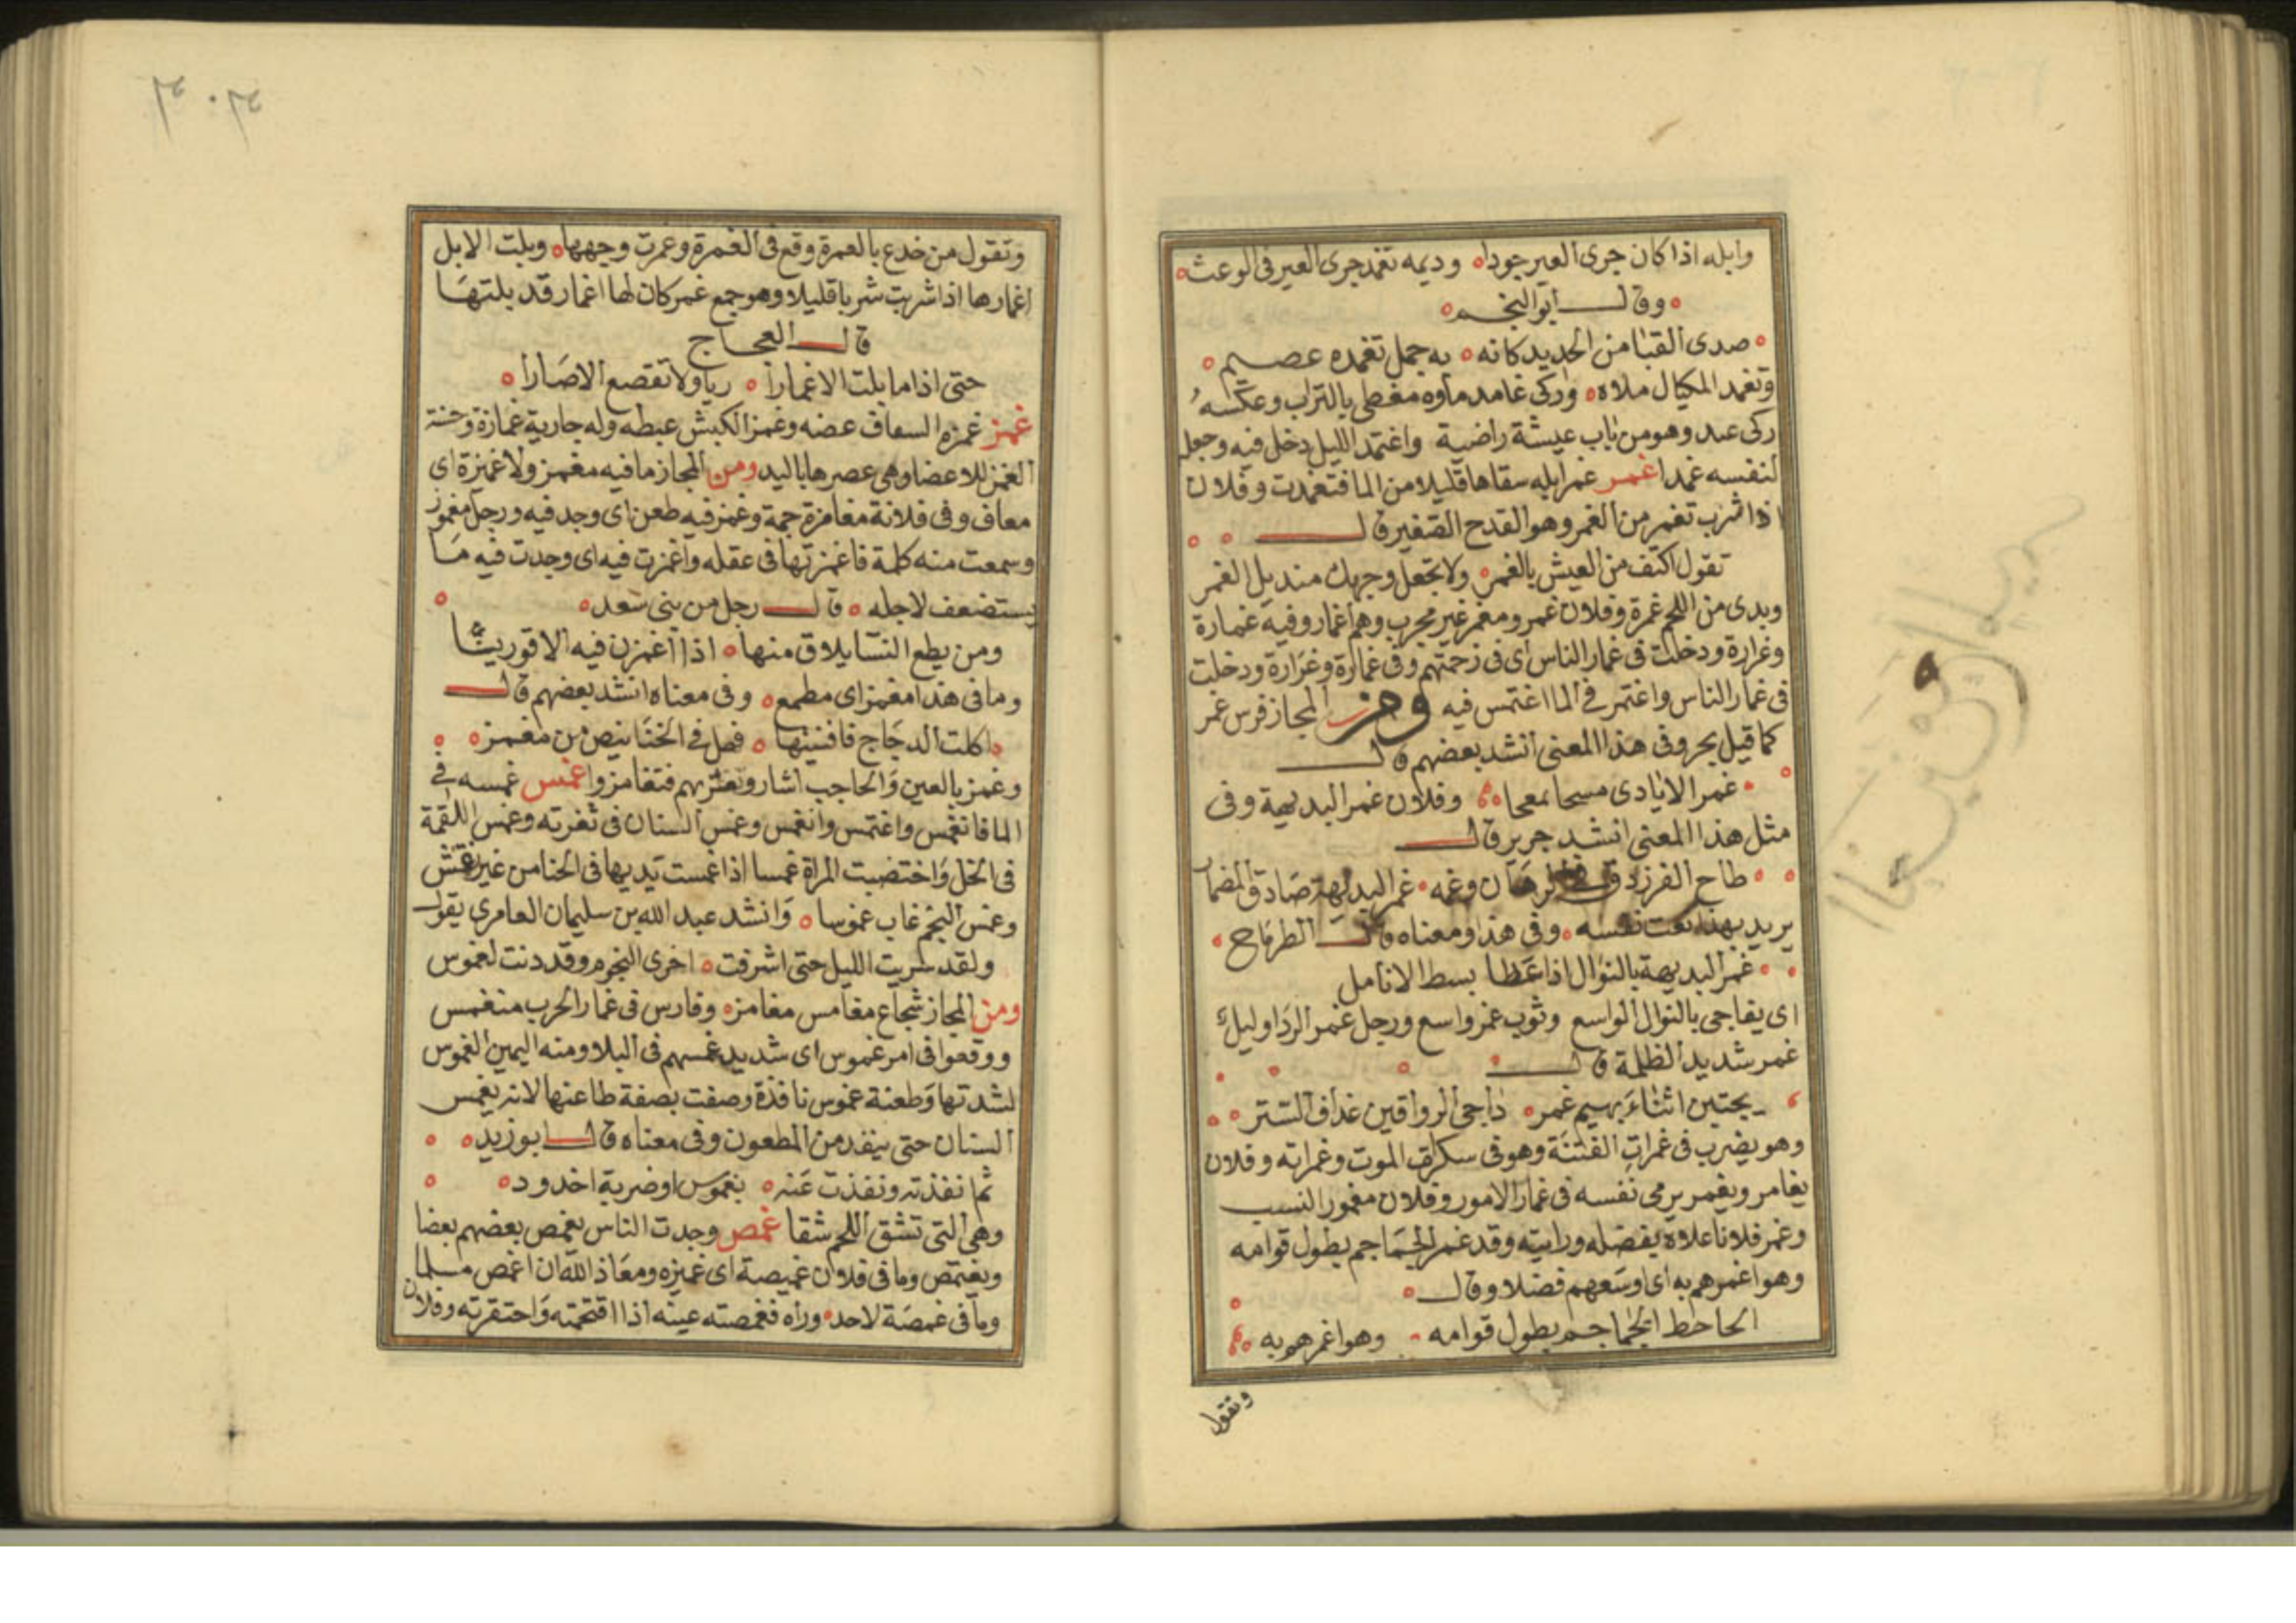 وابله اذا كان جرى العير جودا وديمه تغمد جرى العير فى الوعث
وقال ابو النجم
صدى القبا من الحديد كانه به جمل تغمده عصيم
وتغمد المكيال ملاه وركى غامد ماوه مغطى بالتراب وعكسه
ركى عبد وهو من باب عيشة راضية واغتمد الليل دخل فيه وجعل
لنفسه غمدا غمر غمر ابله سقاها قليلا من الما فتغمدت وفلان
اذا شرب تغمر من الغمر وهو القدح الصغير قال
تقول اكتف من العيش بالغمر ولا تجعل وجهك منديل الغمر
وبدى من اللحم غمرة وفلان غمر ومغمر غير مجرب وهم اغمار وفيه غمارة
وغرارة ودخلت فى غمار الناس اى فى زحمتهم وفى غمارة وغرارة ودخلت
فى غمار الناس واغتمر فى الما اغتمس فيه ومن المجاز فرس غمر
كما قيل بحر وفى هذا المعنى انشد بعضهم قال
غمر الايادى مسحا معجا وفلان غمر البديهة وفى
مثل هذا المعنى انشد جرير قال
طاح الفرزدق فى الرهان وغمه غمر البديهة صادق المضمار
يريد بهذا نعت نفسه وفى هذا ومعناه قال الطرماح
غمر البديهة بالنوال اذا غطا بسط الانامل
اى يفاجى بالنوال الواسع وثوب غمر واسع ورجل غمر الردا وليل
غمر شديد الظلمة قال
يجتبن اثناء بهيم غمر داجى الرواقين غداف الستر
وهو يضرب فى غمرات الفتنة وهو فى سكرات الموت وغمراته وفلان
يغامر ويغمر يرمى نفسه فى غمار الامور وفلان مغمور النسب
وغمر فلانا علاه بفضله ورابيته وقد غمر الجماجم بطول قوامه
وهو اغمرهم به اى اوسعهم فضلا وقال
الحاحظ الجماجم بطول قوامه وهو اغمرهم به
وتقول
٣٠٣
وتقول من خدع بالغمرة وقع فى الغمرة وغمرت وجهها وبلت الابل
اغمارها اذا شربت شربا قليلا وهو جمع غمر كان لها اغمار قد بلتها
قال العجاج
حتى اذا ما بلت الاغمارا ريا ولا تقصع الاصارا
غمز غمزه السعاف عضه وغمز الكبش عبطه وله جارية غمازة وحنة
الغمز للاعضا وهى عصرها باليد ومن المجاز ما فيه مغمز ولا غميزة اى
معاف وفى فلانة مغامزة جمة وغمز فيه طعن اى وجد فيه ورجل مغموز
وسمعت منه كلمة فاغمزتها فى عقله واغمزت فيه اى وجدت فيه ما
يستضعف لاجله قال رجل من بنى سعد
ومن يطع النسا يلاق منها اذا اغمزن فيه الاقورينا
وما فى هذا مغمز اى مطمع وفى معناه انشد بعضهم قال
اكلت الدجاج فافنيتها فهل فى الخنانيص من مغمز
وغمز بالعين والحاجب اشار وتغتر بهم فتغامزوا غمس غمسه فى
الما فانغمس واغتمس وانغمس وغمس السنان فى ثغرته وغمس اللقمة
فى الخل واختضبت المراة غمسا اذا غمست يديها فى الحنا من غير نقش
وغمس النجم غاب غموسا وانشد عبد الله بن سليمان العامرى يقول
ولقد سريت الليل حتى اشرفت اخرى النجوم وقد دنت لغموس
ومن المجاز شجاع مغامس مغامزه وفارس فى غمار الحرب منغمس
ووقعوا فى امر غموس اى شديد غمسهم فى البلا ومنه اليمين الغموس
لشدتها وطعنة غموس نافذة وصفت بصفة طاعنها لانه يغمس
السنان حتى ينفذ من المطعون وفى معناه قال ابو زيد
ثم انفذته ونفذت عنه بغموس او ضربة اخدود
وهى التى تشق اللحم شقا غمص وجدت الناس يغمص بعضهم بعضا
ويغتمص وما فى فلان غميصة اى غميزه ومعاذ الله ان اغمص مسلما
وما فى غمصة لاحد وراه فغمصته عينه اذا اقتحمته واحتقرته وفلان